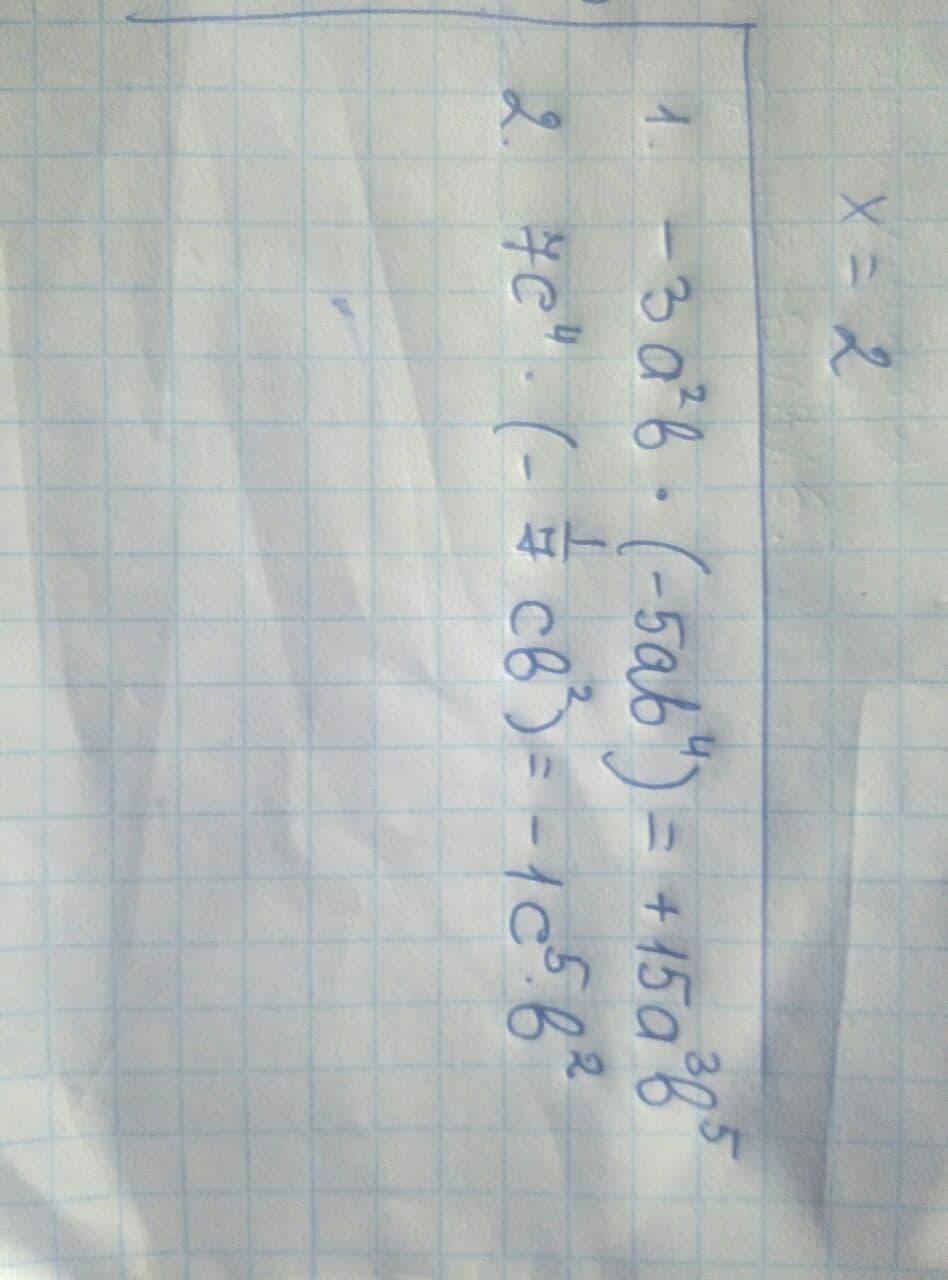 x = 2
1. -3a²b · (-5ab⁴) = +15a³b⁵
2. 7c⁴ · (- 1/7 cb²) = -1c⁵·b²